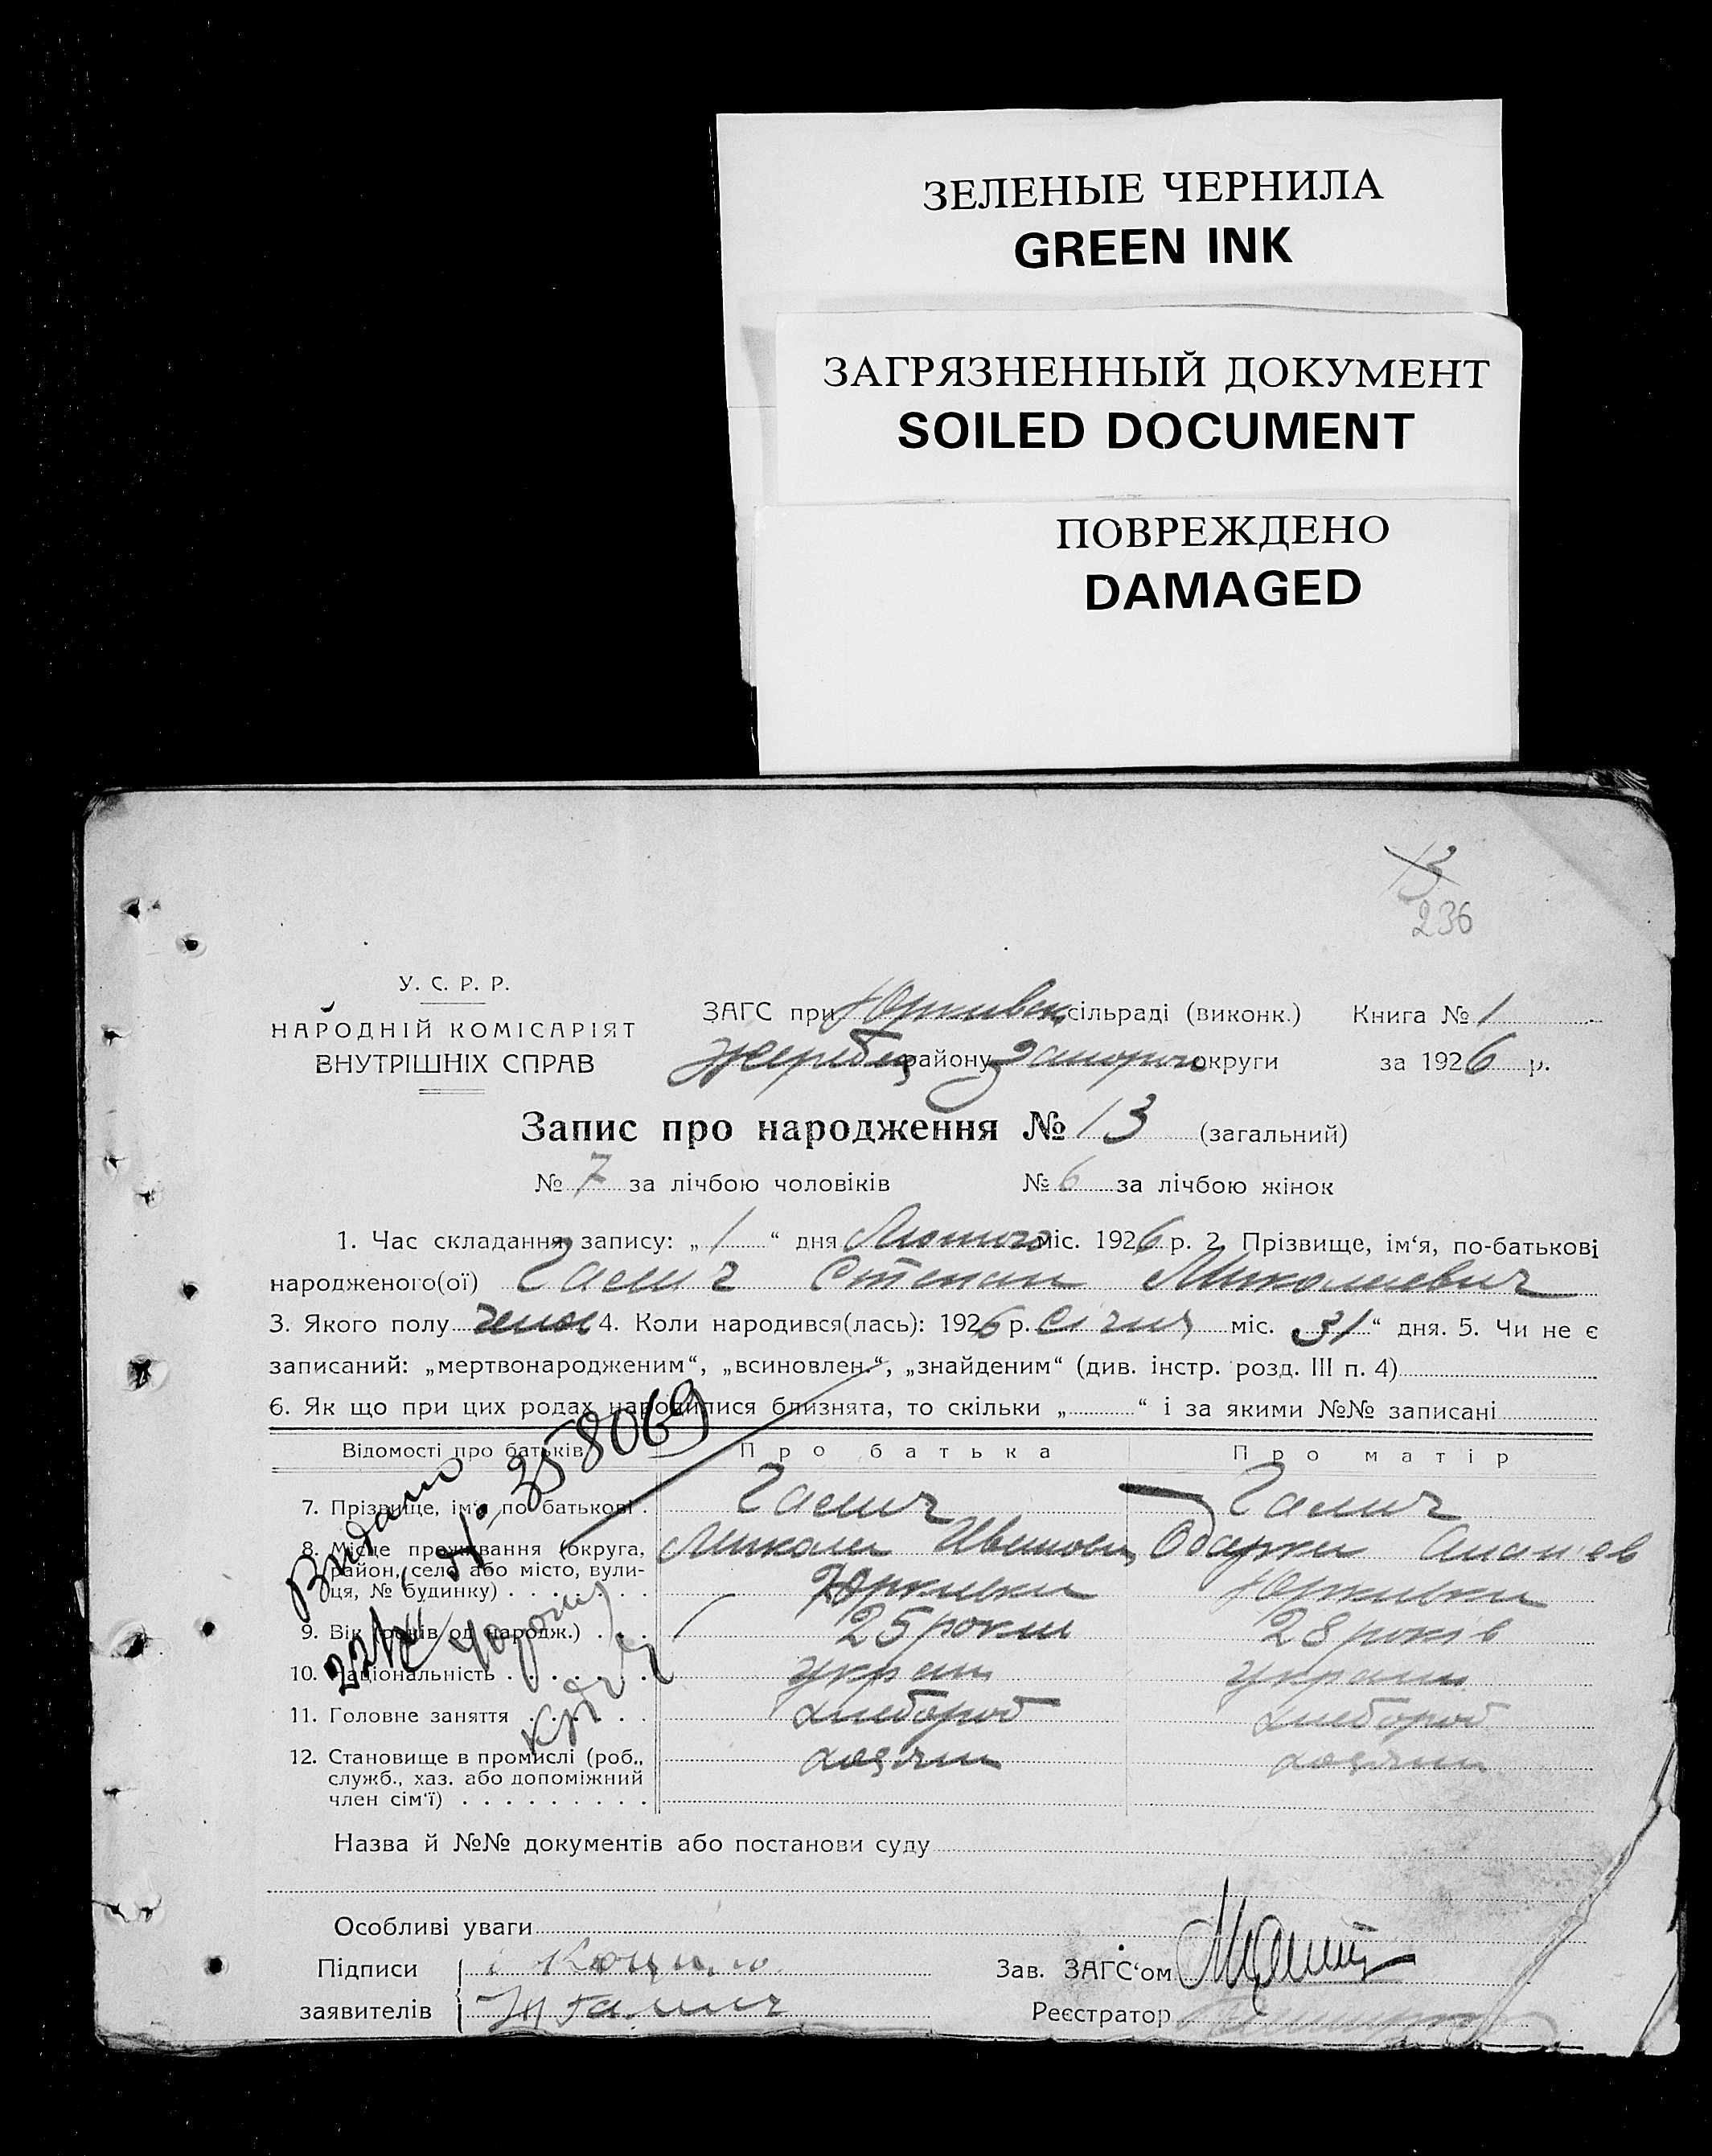 ЗЕЛЕНЫЕ ЧЕРНИЛА
GREEN INK
ЗАГРЯЗНЕННЫЙ ДОКУМЕНТ
SOILED DOCUMENT
ПОВРЕЖДЕНО
DAMAGED
13
236
У. С. Р. Р.
НАРОДНІЙ КОМІСАРІЯТ
ВНУТРІШНІХ СПРАВ
ЗАГС при Юрківск сільраді (виконк.) Книга № 1
Жеребец району Запорож округи за 1926 р.
Запис про народження № 13 (загальний)
№ 7 за лічбою чоловіків № 6 за лічбою жінок
1. Час складання запису: „1“ дня Лютого міс. 1926 р. 2. Прізвище, ім‘я, по-батькові
народженого(ої) Галич Степан Миколаевич
3. Якого полу чолов 4. Коли народився(лась): 1926 р. Січня міс. 31“ дня. 5. Чи не є
записаний: „мертвонародженим“, „всиновлен.“, „знайденим“ (див. інстр. розд. III п. 4)
6. Як що при цих родах народилися близнята, то скільки „ “ і за якими №№ записані
Відомості про батьків Про батька Про матір
7. Прізвище, ім‘я, по-батькові Галич Галич
Микола Иванович Одарка Анан
8. Місце проживання (округа, район, село або місто, вулиця, № будинку) Юрківка Юрківка
9. Вік (років од народж.) 25 роки 28 років
10. Національність украин украин
11. Головне заняття хлебороб хлебороб
12. Становище в промислі (роб., хозяин хозяин
служб., хаз. або допоміжний
член сім‘ї)
Видано
358069
Назва й №№ документів або постанови суду
Особливі уваги
Підписи Зав. ЗАГС‘ом
заявителів Галич Реєстратор